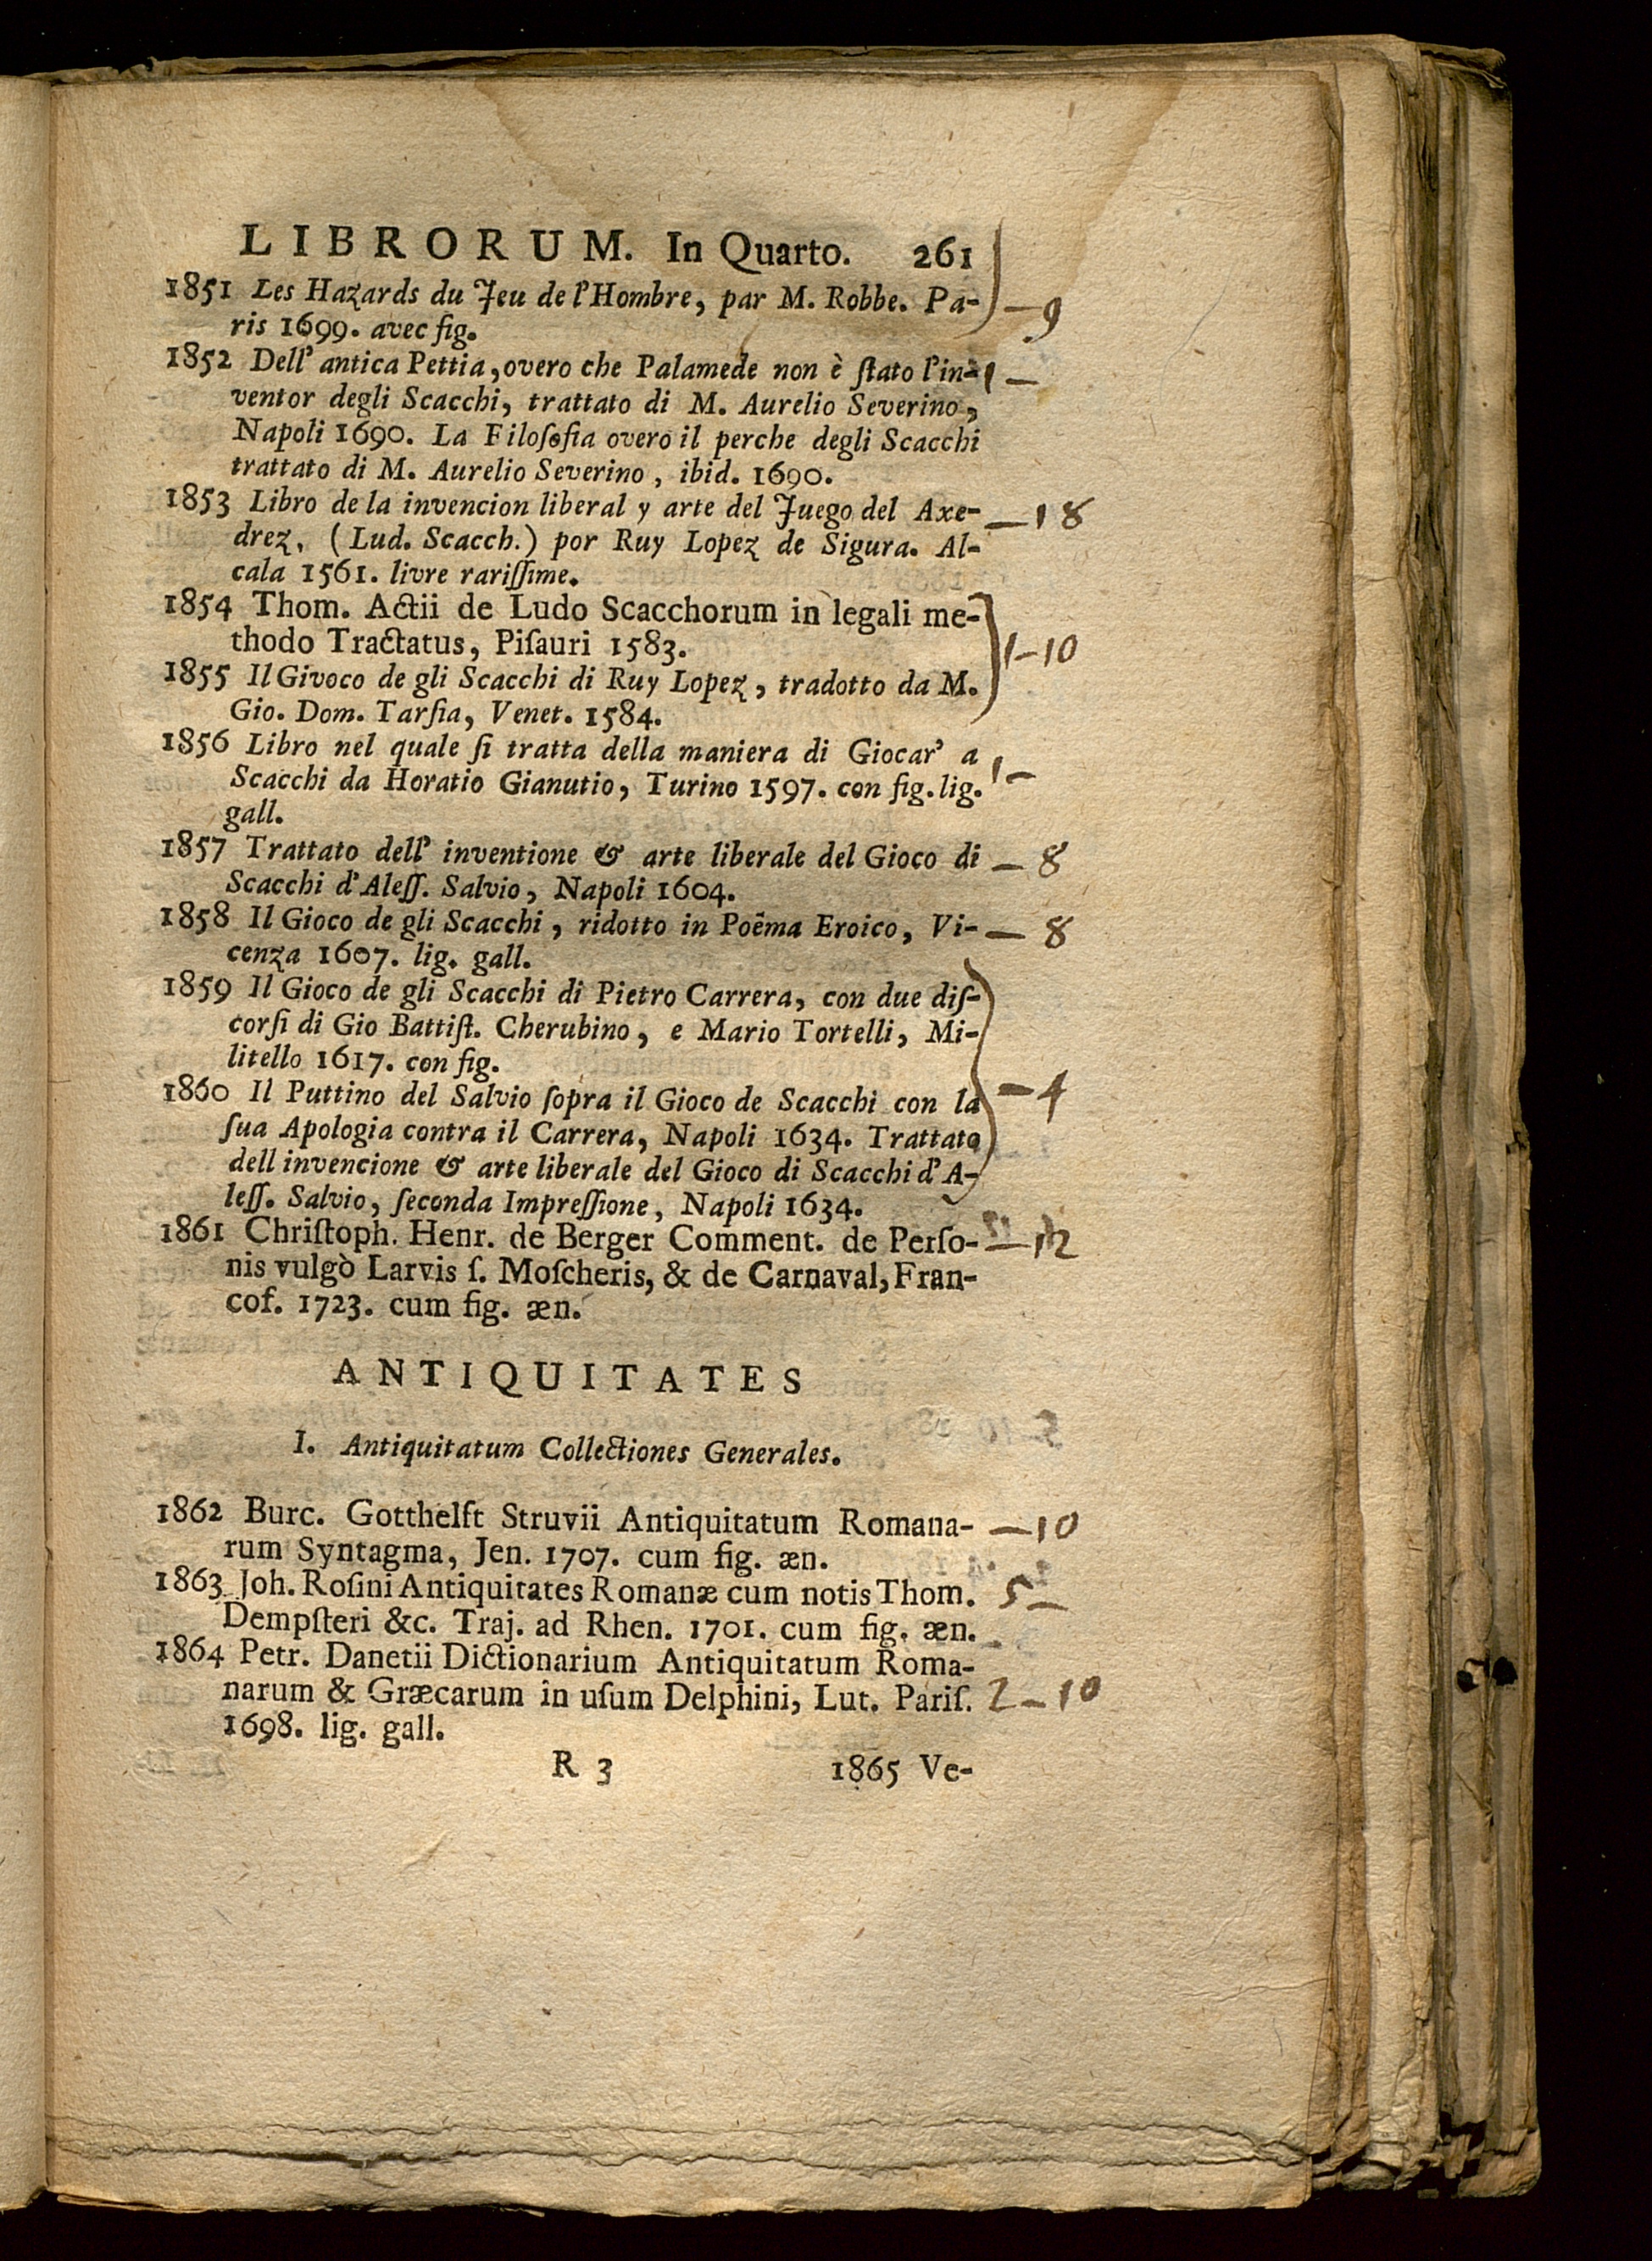 LIBRORUM. In Quarto. 261
1851 Les Hazards du Jeu de l'Hombre, par M. Robbe. Pa- — 9
ris 1699. avec fig.
1852 Dell' antica Pettia, overo che Palamede non è ſtato l'in- 1 —
ventor degli Scacchi, trattato di M. Aurelio Severino,
Napoli 1690. La Filoſofia overo il perche degli Scacchi
trattato di M. Aurelio Severino, ibid. 1690.
1853 Libro de la invencion liberal y arte del Juego del Axe- — 18
drez, (Lud. Scacch.) por Ruy Lopez de Sigura. Al-
cala 1561. livre rariſſime.
1854 Thom. Actii de Ludo Scacchorum in legali me-
thodo Tractatus, Piſauri 1583. 1 — 10
1855 Il Givoco de gli Scacchi di Ruy Lopez, tradotto da M.
Gio. Dom. Tarſia, Venet. 1584.
1856 Libro nel quale ſi tratta della maniera di Giocar' a
Scacchi da Horatio Gianutio, Turino 1597. con fig. lig. 1 —
gall.
1857 Trattato dell' inventione & arte liberale del Gioco di — 8
Scacchi d'Aleſſ. Salvio, Napoli 1604.
1858 Il Gioco de gli Scacchi, ridotto in Poëma Eroico, Vi- — 8
cenza 1607. lig. gall.
1859 Il Gioco de gli Scacchi di Pietro Carrera, con due diſ-
corſi di Gio Battiſt. Cherubino, e Mario Tortelli, Mi-
litello 1617. con fig.
1860 Il Puttino del Salvio ſopra il Gioco de Scacchi con la — 4
ſua Apologia contra il Carrera, Napoli 1634. Trattato
dell invencione & arte liberale del Gioco di Scacchi d'A-
leſſ. Salvio, ſeconda Impreſſione, Napoli 1634.
1861 Chriſtoph. Henr. de Berger Comment. de Perſo- —
nis vulgò Larvis ſ. Moſcheris, & de Carnaval, Fran-
cof. 1723. cum fig. æn.
ANTIQUITATES
I. Antiquitatum Collectiones Generales.
1862 Burc. Gotthelft Struvii Antiquitatum Romana- — 10
rum Syntagma, Jen. 1707. cum fig. æn.
1863 Joh. Roſini Antiquitates Romanæ cum notis Thom. 5 —
Dempſteri &c. Traj. ad Rhen. 1701. cum fig. æn.
1864 Petr. Danetii Dictionarium Antiquitatum Roma-
narum & Græcarum in uſum Delphini, Lut. Pariſ. 2 — 10
1698. lig. gall.
R 3 1865 Ve-